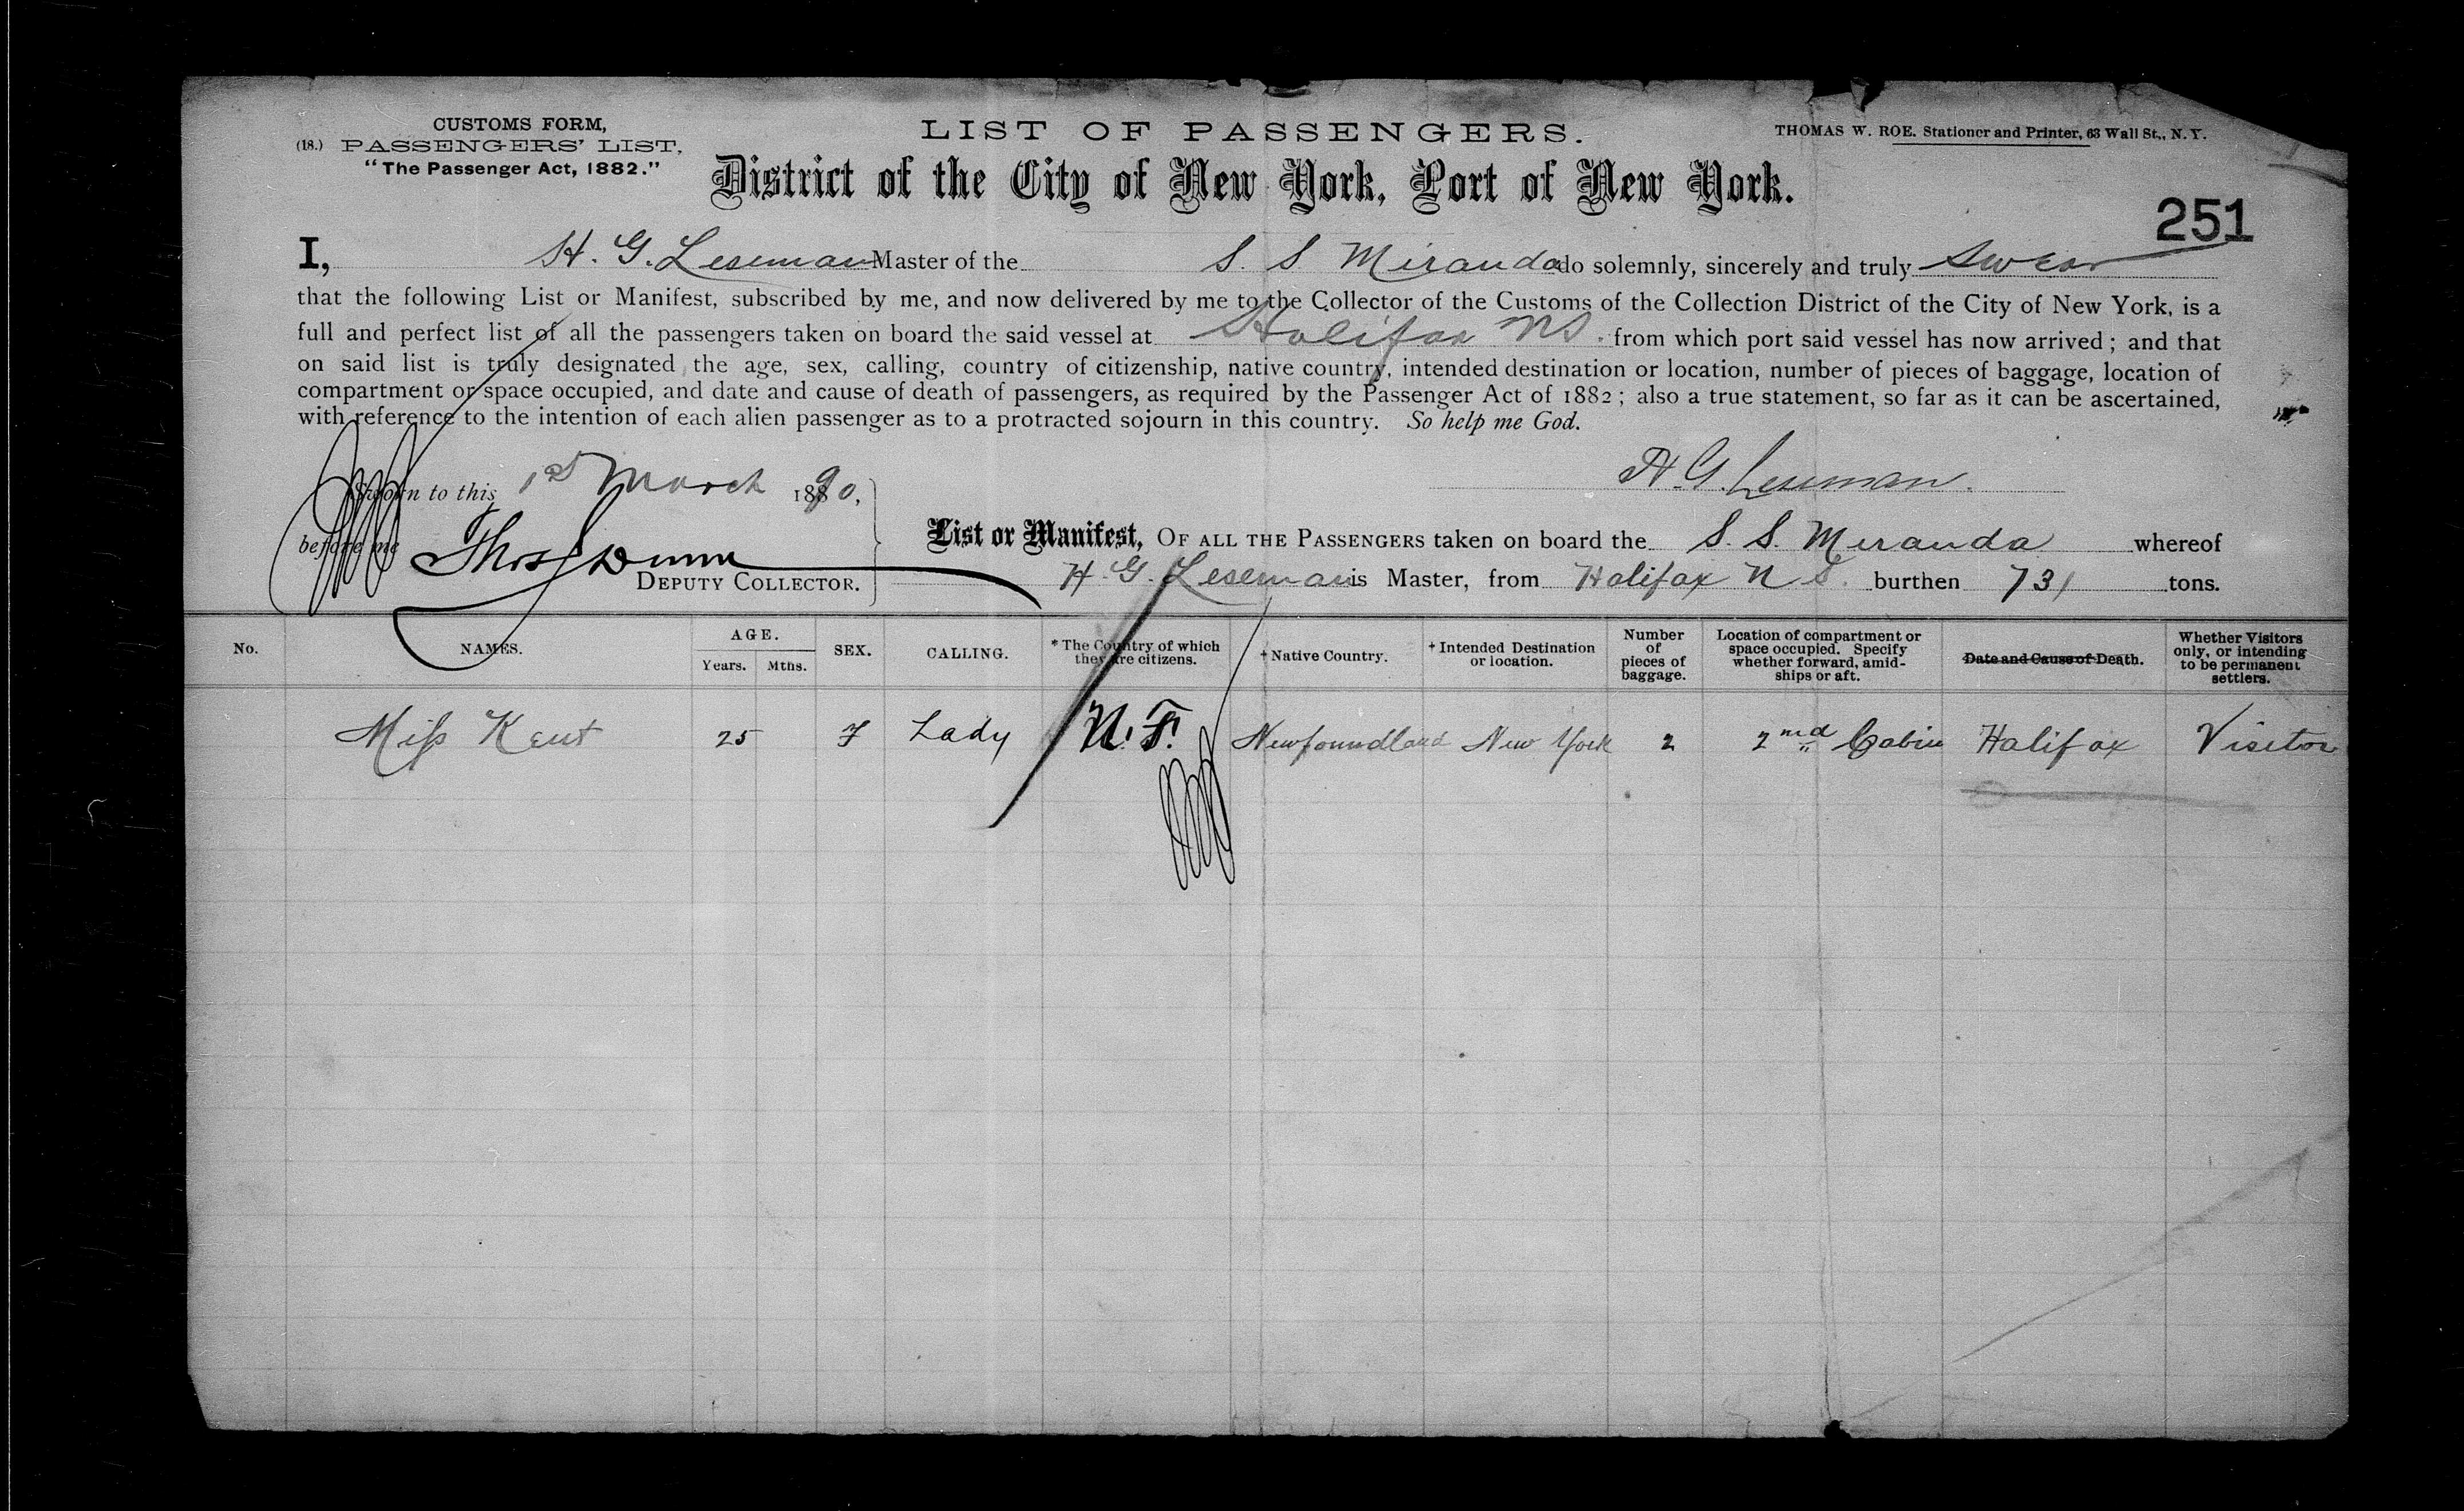 CUSTOMS FORM,
(18.) PASSENGERS' LIST,
"The Passenger Act, 1882."
LIST OF PASSENGERS.
THOMAS W. ROE. Stationer and Printer, 63 Wall St., N. Y.
District of the City of New York, Port of New York.
251
I, H. G. Leseman Master of the S. S Miranda do solemnly, sincerely and truly swear
that the following List or Manifest, subscribed by me, and now delivered by me to the Collector of the Customs of the Collection District of the City of New York, is a
full and perfect list of all the passengers taken on board the said vessel at Halifax NS. from which port said vessel has now arrived; and that
on said list is truly designated the age, sex, calling, country of citizenship, native country, intended destination or location, number of pieces of baggage, location of
compartment or space occupied, and date and cause of death of passengers, as required by the Passenger Act of 1882; also a true statement, so far as it can be ascertained,
with reference to the intention of each alien passenger as to a protracted sojourn in this country. So help me God.
H. G. Leseman.
Sworn to this 1st March 1890,
before me Thos Dunn
DEPUTY COLLECTOR.
List or Manifest, OF ALL THE PASSENGERS taken on board the S. S. Miranda whereof
H. G. Leseman is Master, from Halifax N S. burthen 731 tons.
No. NAMES. AGE. Years. Mths. SEX. CALLING. * The Country of which they are citizens. † Native Country. † Intended Destination or location. Number of pieces of baggage. Location of compartment or space occupied. Specify whether forward, amid-ships or aft. Date and Cause of Death. Whether Visitors only, or intending to be permanent settlers.
Miss Kent 25 F Lady N. F. Newfoundland New York 2 2nd Cabin Halifax Visitor